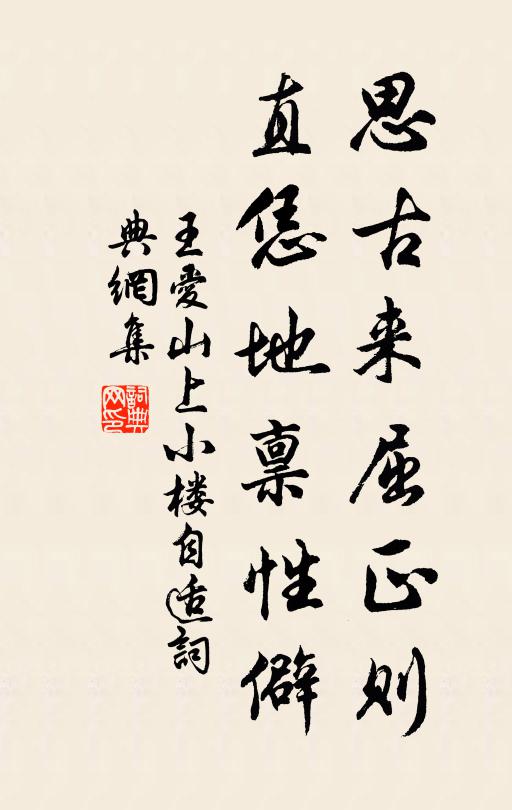 思古来屈正则
直恁地禀性僻
王爱山上小楼自适詞
典網集
詞典網印